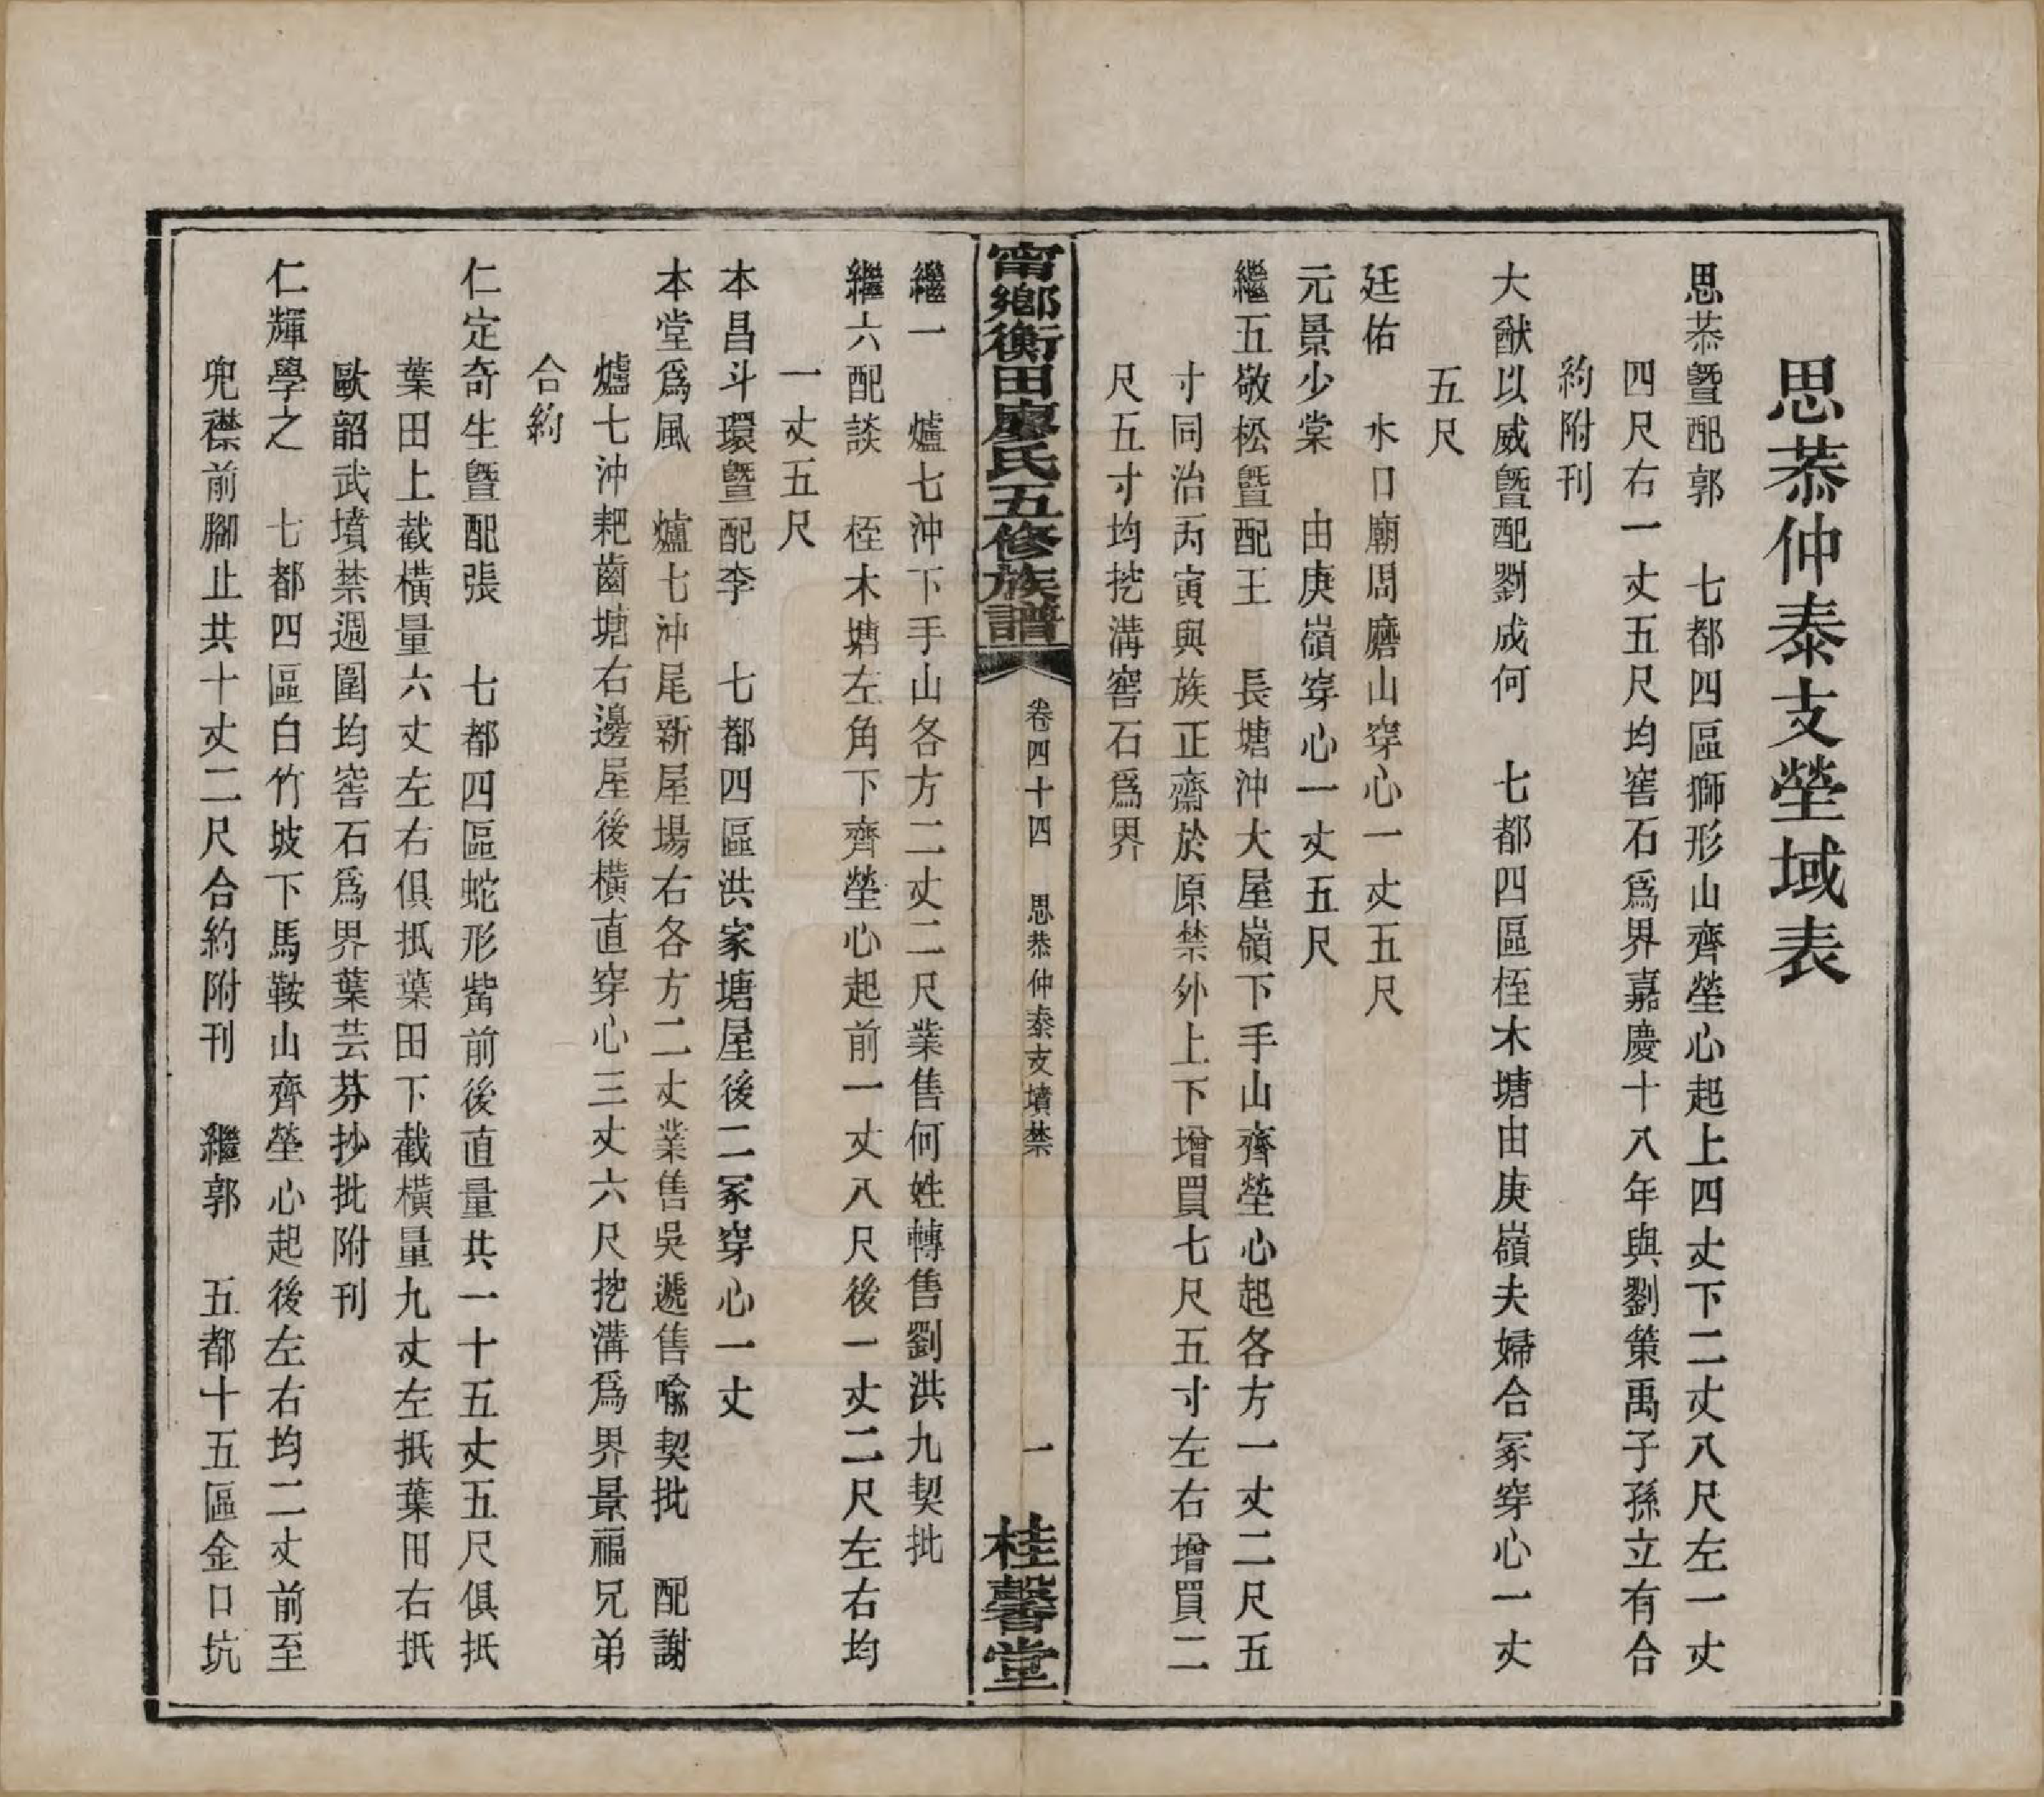 思恭仲泰支塋域表
思恭暨配郭　七都四區獅形山齊塋心起上四丈下二丈八尺左一丈
四尺右一丈五尺均窖石爲界嘉慶十八年與劉策禹子孫立有合
約附刊
大猷以威暨配劉成何　七都四區桎木塘由庚嶺夫婦合冢穿心一丈
五尺
廷佑　水口廟周磨山穿心一丈五尺
元景少棠　由庚嶺穿心一丈五尺
繼五敬松暨配王　長塘沖大屋嶺下手山齊塋心起各方一丈二尺五
寸同治丙寅與族正齋於原禁外上下增買七尺五寸左右增買二
尺五寸均挖溝窖石爲界
甯鄉衡田廖氏五修族譜　卷四十四　思恭仲泰支墳禁　一　桂馨堂
繼一　爐七沖下手山各方二丈二尺業售何姓轉售劉洪九契批
繼六配談　桎木塘左角下齊塋心起前一丈八尺後一丈二尺左右均
一丈五尺
本昌斗環暨配李　七都四區洪家塘屋後二冢穿心一丈
本堂爲風　爐七沖尾新屋場右各方二丈業售吳遞售喩契批　配謝
爐七沖耙齒塘右邊屋後橫直穿心三丈六尺挖溝爲界景福兄弟
合約
仁定奇生暨配張　七都四區蛇形觜前後直量共一十五丈五尺俱抵
葉田上截橫量六丈左右俱抵葉田下截橫量九丈左抵葉田右抵
歐韶武墳禁週圍均窖石爲界葉芸芬抄批附刊
仁輝學之　七都四區白竹坡下馬鞍山齊塋心起後左右均二丈前至
兜襟前腳止共十丈二尺合約附刊　繼郭　五都十五區金口坑